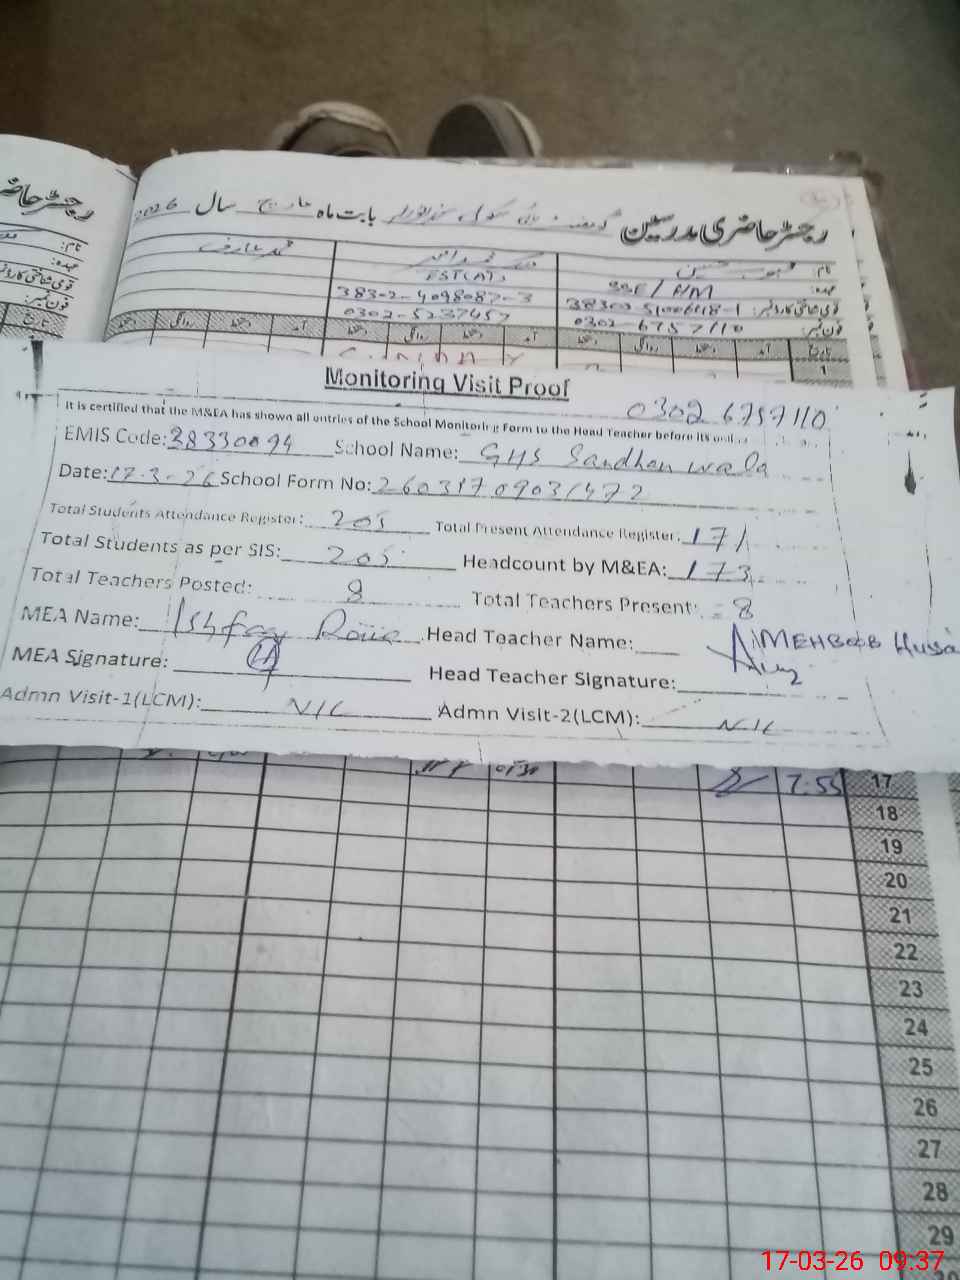 رجسٹر حاضری مدرسین گورنمنٹ ہائی سکول سندانوالہ بابت ماہ مارچ سال 2026
رجسٹر حاضری
نام: محبوب حسین
محمد عارف
عہدہ: SSE/HM
EST(AT)
قومی شناختی کارڈ نمبر:
38302-4098087-3
فون نمبر: 0302-6757110
0302-5237457
تاریخ آمد دستخط روانگی دستخط آمد دستخط روانگی دستخط
1
Monitoring Visit Proof
0302 6757110
It is certified that the M&EA has shown all entries of the School Monitoring Form to the Head Teacher before its
EMIS Code: 38330094 School Name: GHS Sandhanwala
Date: 17-3-26 School Form No: 26031709031472
Total Students Attendance Register: 205 Total Present Attendance Register: 171
Total Students as per SIS: 205 Headcount by M&EA: 173
Total Teachers Posted: 8 Total Teachers Present: 8
MEA Name: Head Teacher Name: MEHBOOB Hussa
MEA Signature: Head Teacher Signature:
Admn Visit-1(LCM): NIL Admn Visit-2(LCM): NIL
7:55 17
18
19
20
21
22
23
24
25
26
27
28
29
17-03-26 09:37